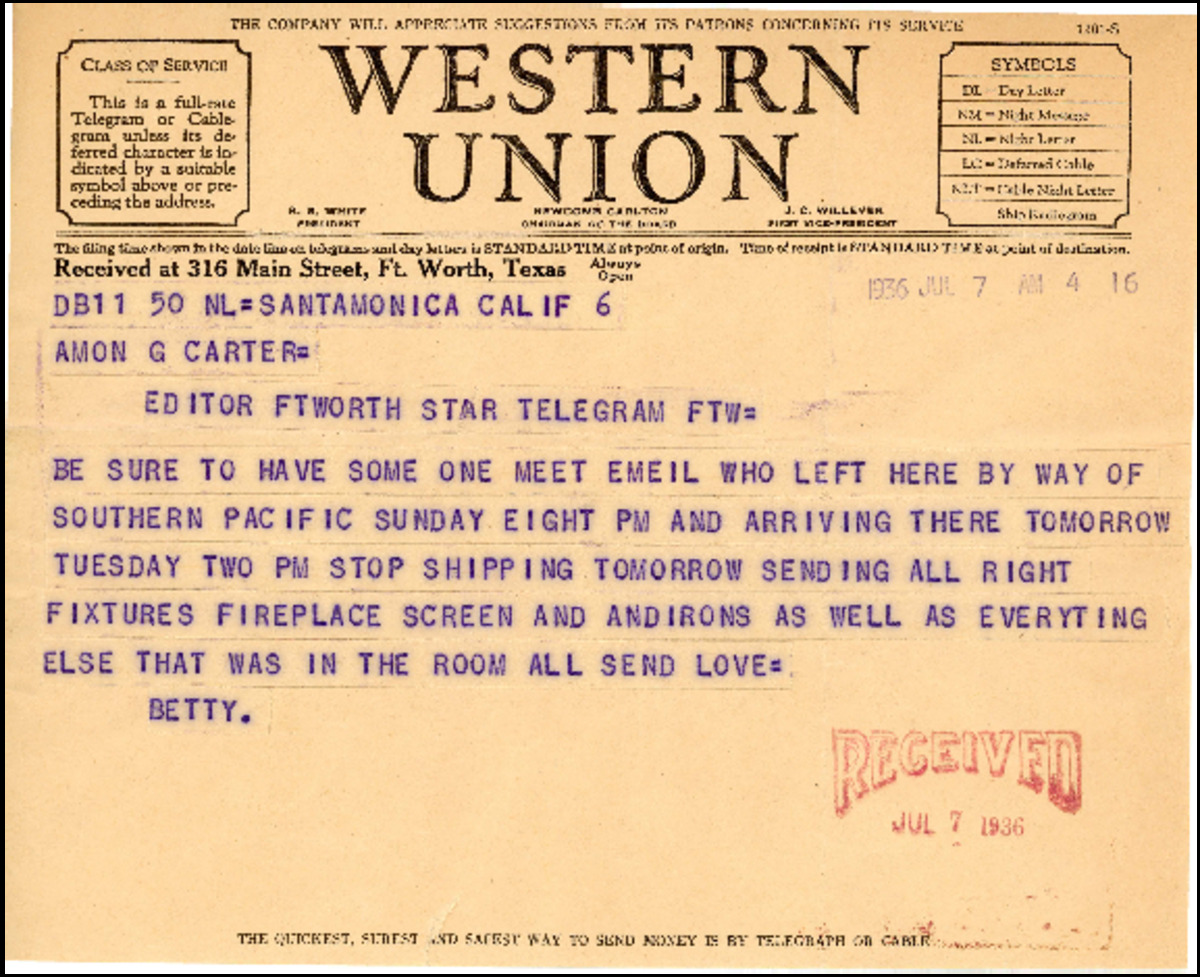 THE COMPANY WILL APPRECIATE SUGGESTIONS FROM ITS PATRONS CONCERNING ITS SERVICE
1201-S
CLASS OF SERVICE
This is a full-rate
Telegram or Cable-
gram unless its de-
ferred character is in-
dicated by a suitable
symbol above or pre-
ceding the address.
WESTERN
UNION
R. B. WHITE
PRESIDENT
NEWCOMB CARLTON
CHAIRMAN OF THE BOARD
J. C. WILLEVER
FIRST VICE-PRESIDENT
SYMBOLS
DL = Day Letter
NM = Night Message
NL = Night Letter
LC = Deferred Cable
NLT = Cable Night Letter
Ship Radiogram
The filing time shown in the date line on telegrams and day letters is STANDARD TIME at point of origin. Time of receipt is STANDARD TIME at point of destination.
Received at 316 Main Street, Ft. Worth, Texas Always Open
1936 JUL 7 AM 4 16
DB11 50 NL=SANTAMONICA CALIF 6
AMON G CARTER=
EDITOR FTWORTH STAR TELEGRAM FTW=
BE SURE TO HAVE SOME ONE MEET EMEIL WHO LEFT HERE BY WAY OF
SOUTHERN PACIFIC SUNDAY EIGHT PM AND ARRIVING THERE TOMORROW
TUESDAY TWO PM STOP SHIPPING TOMORROW SENDING ALL RIGHT
FIXTURES FIREPLACE SCREEN AND ANDIRONS AS WELL AS EVERYTING
ELSE THAT WAS IN THE ROOM ALL SEND LOVE=
BETTY.
RECEIVED
JUL 7 1936
THE QUICKEST, SUREST AND SAFEST WAY TO SEND MONEY IS BY TELEGRAPH OR CABLE